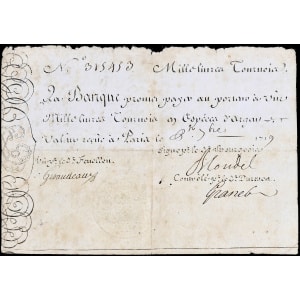 N.º 315453 Mille livres Tournois
La Banque promet payer au porteur à vüe
Mille livres Tournois en Espèces d'argent
Valeur reçüe à Paris le 1719
Signé p.r le S.r Bourgeois
Vu p.r le S.r Fenellon
Giraudeau
Controllé p.r le S.r Durevest
Granet